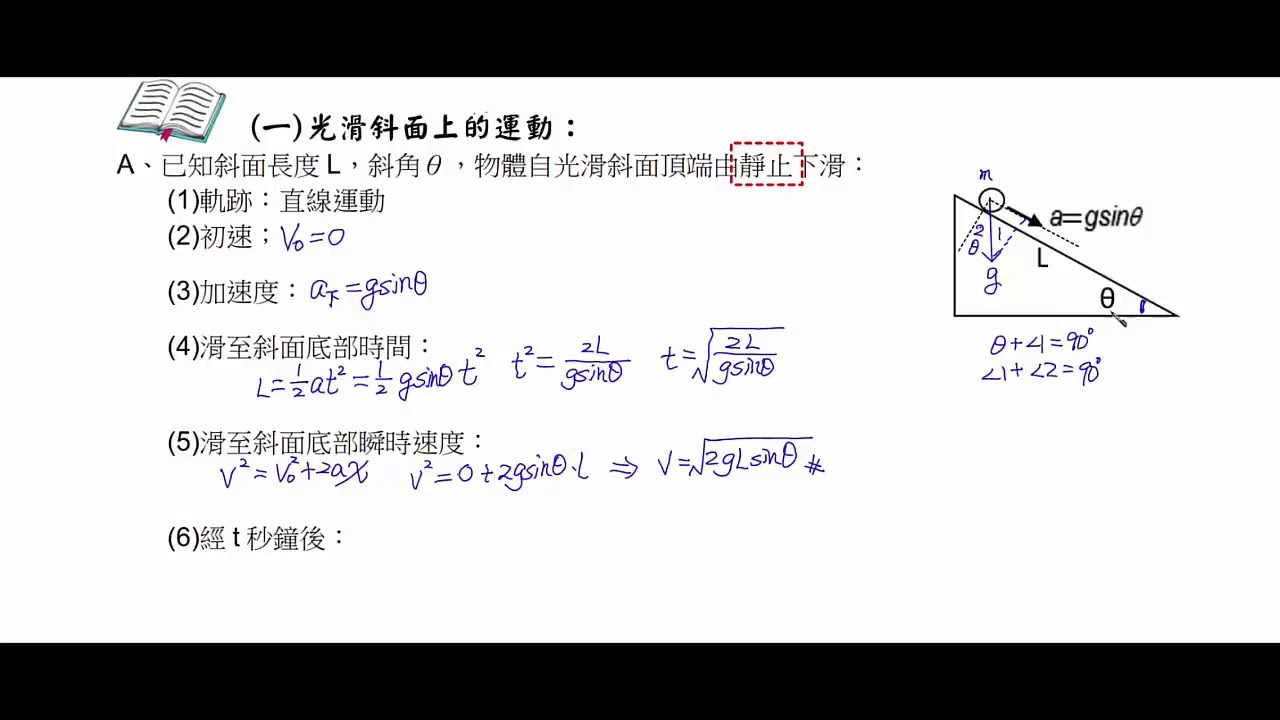 (一)光滑斜面上的運動：
A、已知斜面長度 L，斜角θ，物體自光滑斜面頂端由靜止下滑：
(1)軌跡：直線運動
(2)初速；V₀=0
(3)加速度：a下=gsinθ
(4)滑至斜面底部時間：
L=1/2at²=1/2gsinθt² t²=2L/gsinθ t=√(2L/gsinθ)
(5)滑至斜面底部瞬時速度：
V²=V₀²+2ax V²=0+2gsinθ·L ⇒ V=√2gLsinθ #
(6)經 t 秒鐘後：
m
a=gsinθ
2 1
θ
g
L
θ
θ+∠1=90°
∠1+∠2=90°